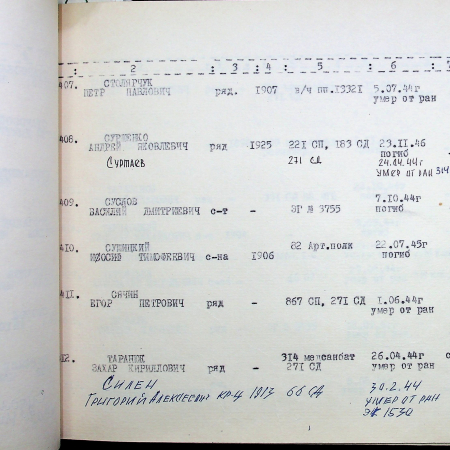 2 : 3 : 4 : 5 : 6 :
407. СТОЛЯРЧУК
ПЕТР ПАВЛОВИЧ ряд. 1907 в/ч пп.13321 5.07.44г
умер от ран
408. СУРПЕНКО
АНДРЕЙ ЯКОВЛЕВИЧ ряд 1925 221 СП, 183 СД 23.11.46
погиб
Суртаев 271 СД 24.04.44г
УМЕР ОТ РАН 314
409. СУСЛОВ 7.10.44г
ВАСИЛИЙ ДМИТРИЕВИЧ с-т - ЭГ № 3755 погиб
410. 82 Арт.полк 22.07.45г
ИОСИФ ТИМОФЕЕВИЧ с-на 1906 погиб
411. СЯЧИН
ЕГОР ПЕТРОВИЧ ряд - 867 СП, 271 СД 1.06.44г
умер от ран
412. ТАРАНЮК 314 медсанбат 26.04.44г
ЗАХАР КИРИЛЛОВИЧ ряд - 271 СД умер от ран
СИЛЕН 30.2.44
ГРИГОРИЙ АЛЕКСЕЕВИЧ КР-Ц 1913 66 СД УМЕР ОТ РАН
ЭГ 1530